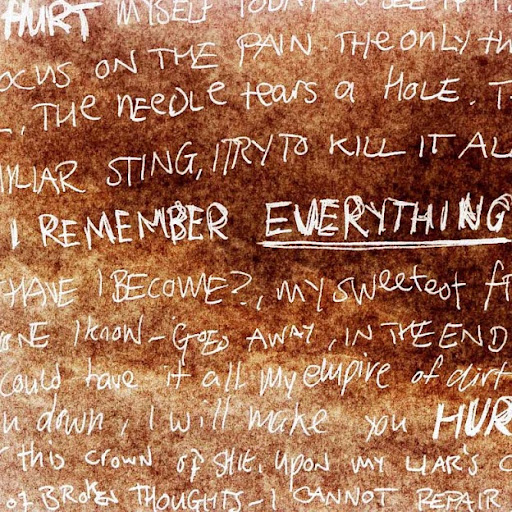 HURT MYSELF TODAY TO SEE IF
OCUS ON THE PAIN. THE ONLY TH
L, THE NEEDLE tears a HOLE. T
MILIAR STING, I TRY TO KILL IT AL
I REMEMBER EVERYTHING
HAVE I BECOME?, my sweetest fr
ONE I know - GOES AWAY, IN THE END
could have it all my empire of dirt
u down, I will make you HUR
this crown of shit, upon my LIAR'S C
of BROKEN THOUGHTS - I CANNOT REPAIR